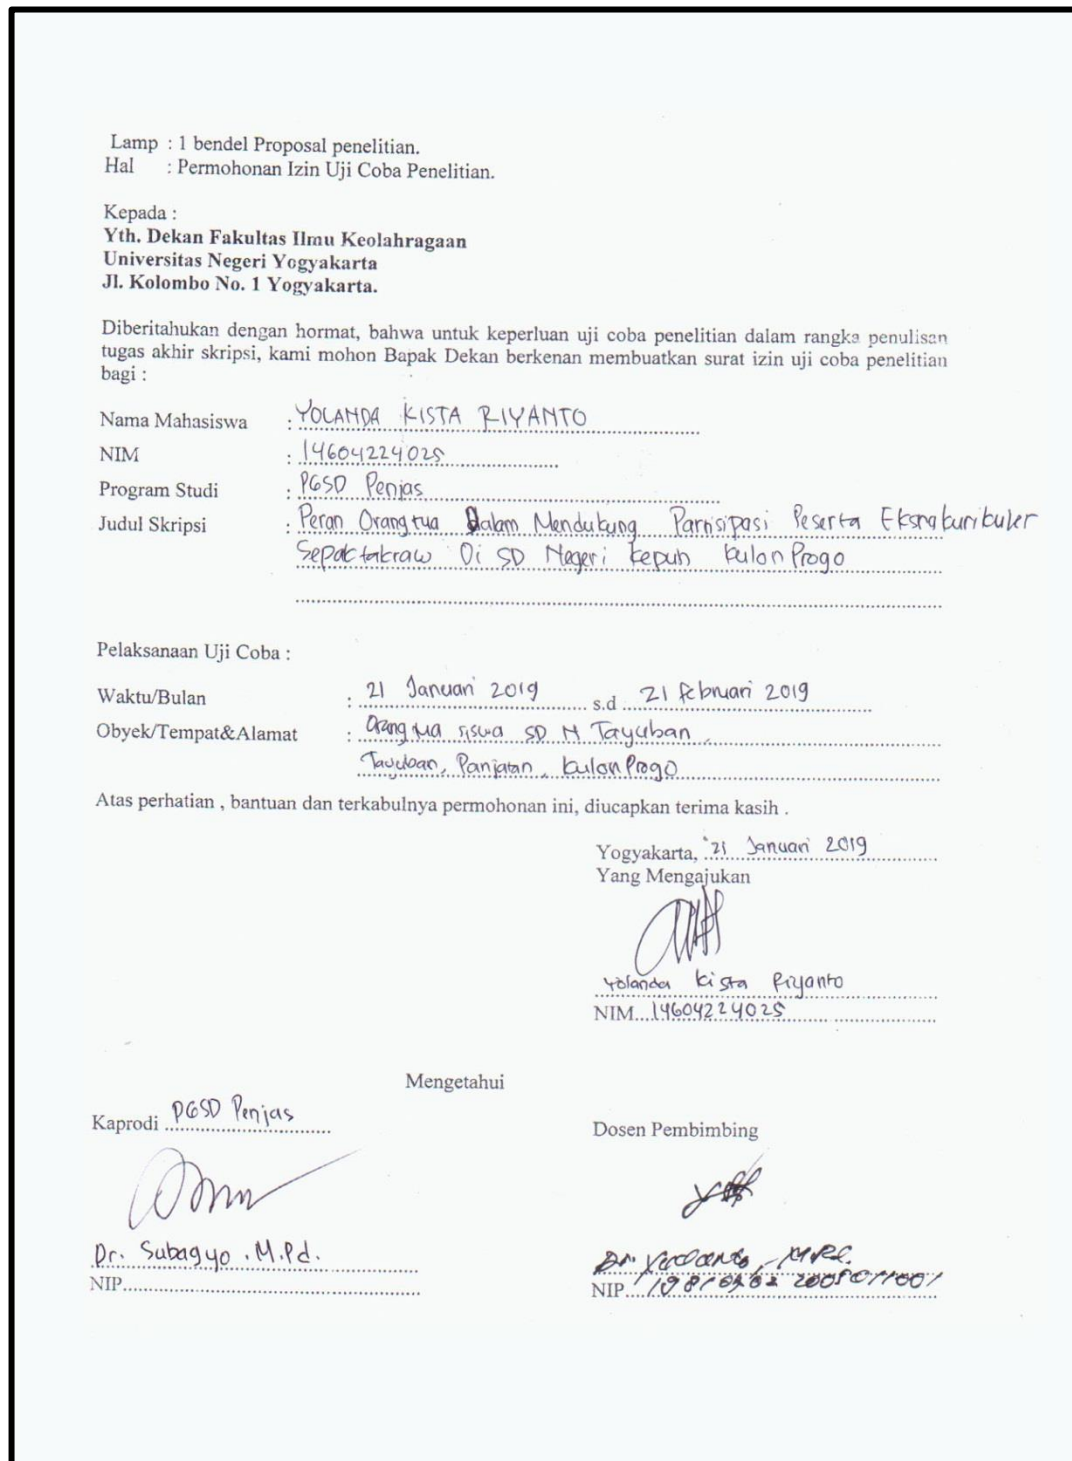 Lamp : 1 bendel Proposal penelitian.
Hal : Permohonan Izin Uji Coba Penelitian.
Kepada :
Yth. Dekan Fakultas Ilmu Keolahragaan
Universitas Negeri Yogyakarta
Jl. Kolombo No. 1 Yogyakarta.
Diberitahukan dengan hormat, bahwa untuk keperluan uji coba penelitian dalam rangka penulisan
tugas akhir skripsi, kami mohon Bapak Dekan berkenan membuatkan surat izin uji coba penelitian
bagi :
Nama Mahasiswa : YOLANDA KISTA RIYANTO
NIM : 14604224025
Program Studi : PGSD Penjas
Judul Skripsi : Peran Orangtua Dalam Mendukung Parnisipasi Peserta Eksrakurikuler
Sepaktakraw Di SD Negeri Kepuh Kulon Progo
Pelaksanaan Uji Coba :
Waktu/Bulan : 21 Januari 2019 s.d 21 februari 2019
Obyek/Tempat&Alamat : Orang tua siswa SD N Tayuban,
Tayuban, Panjatan, Kulon Progo
Atas perhatian , bantuan dan terkabulnya permohonan ini, diucapkan terima kasih .
Yogyakarta, 21 Januari 2019
Yang Mengajukan
Yolanda Kista Riyanto
NIM 14604224025
Mengetahui
Kaprodi PGSD Penjas
Dosen Pembimbing
Dr. Subagyo . M.Pd.
NIP
Dr. M.Pd.
NIP